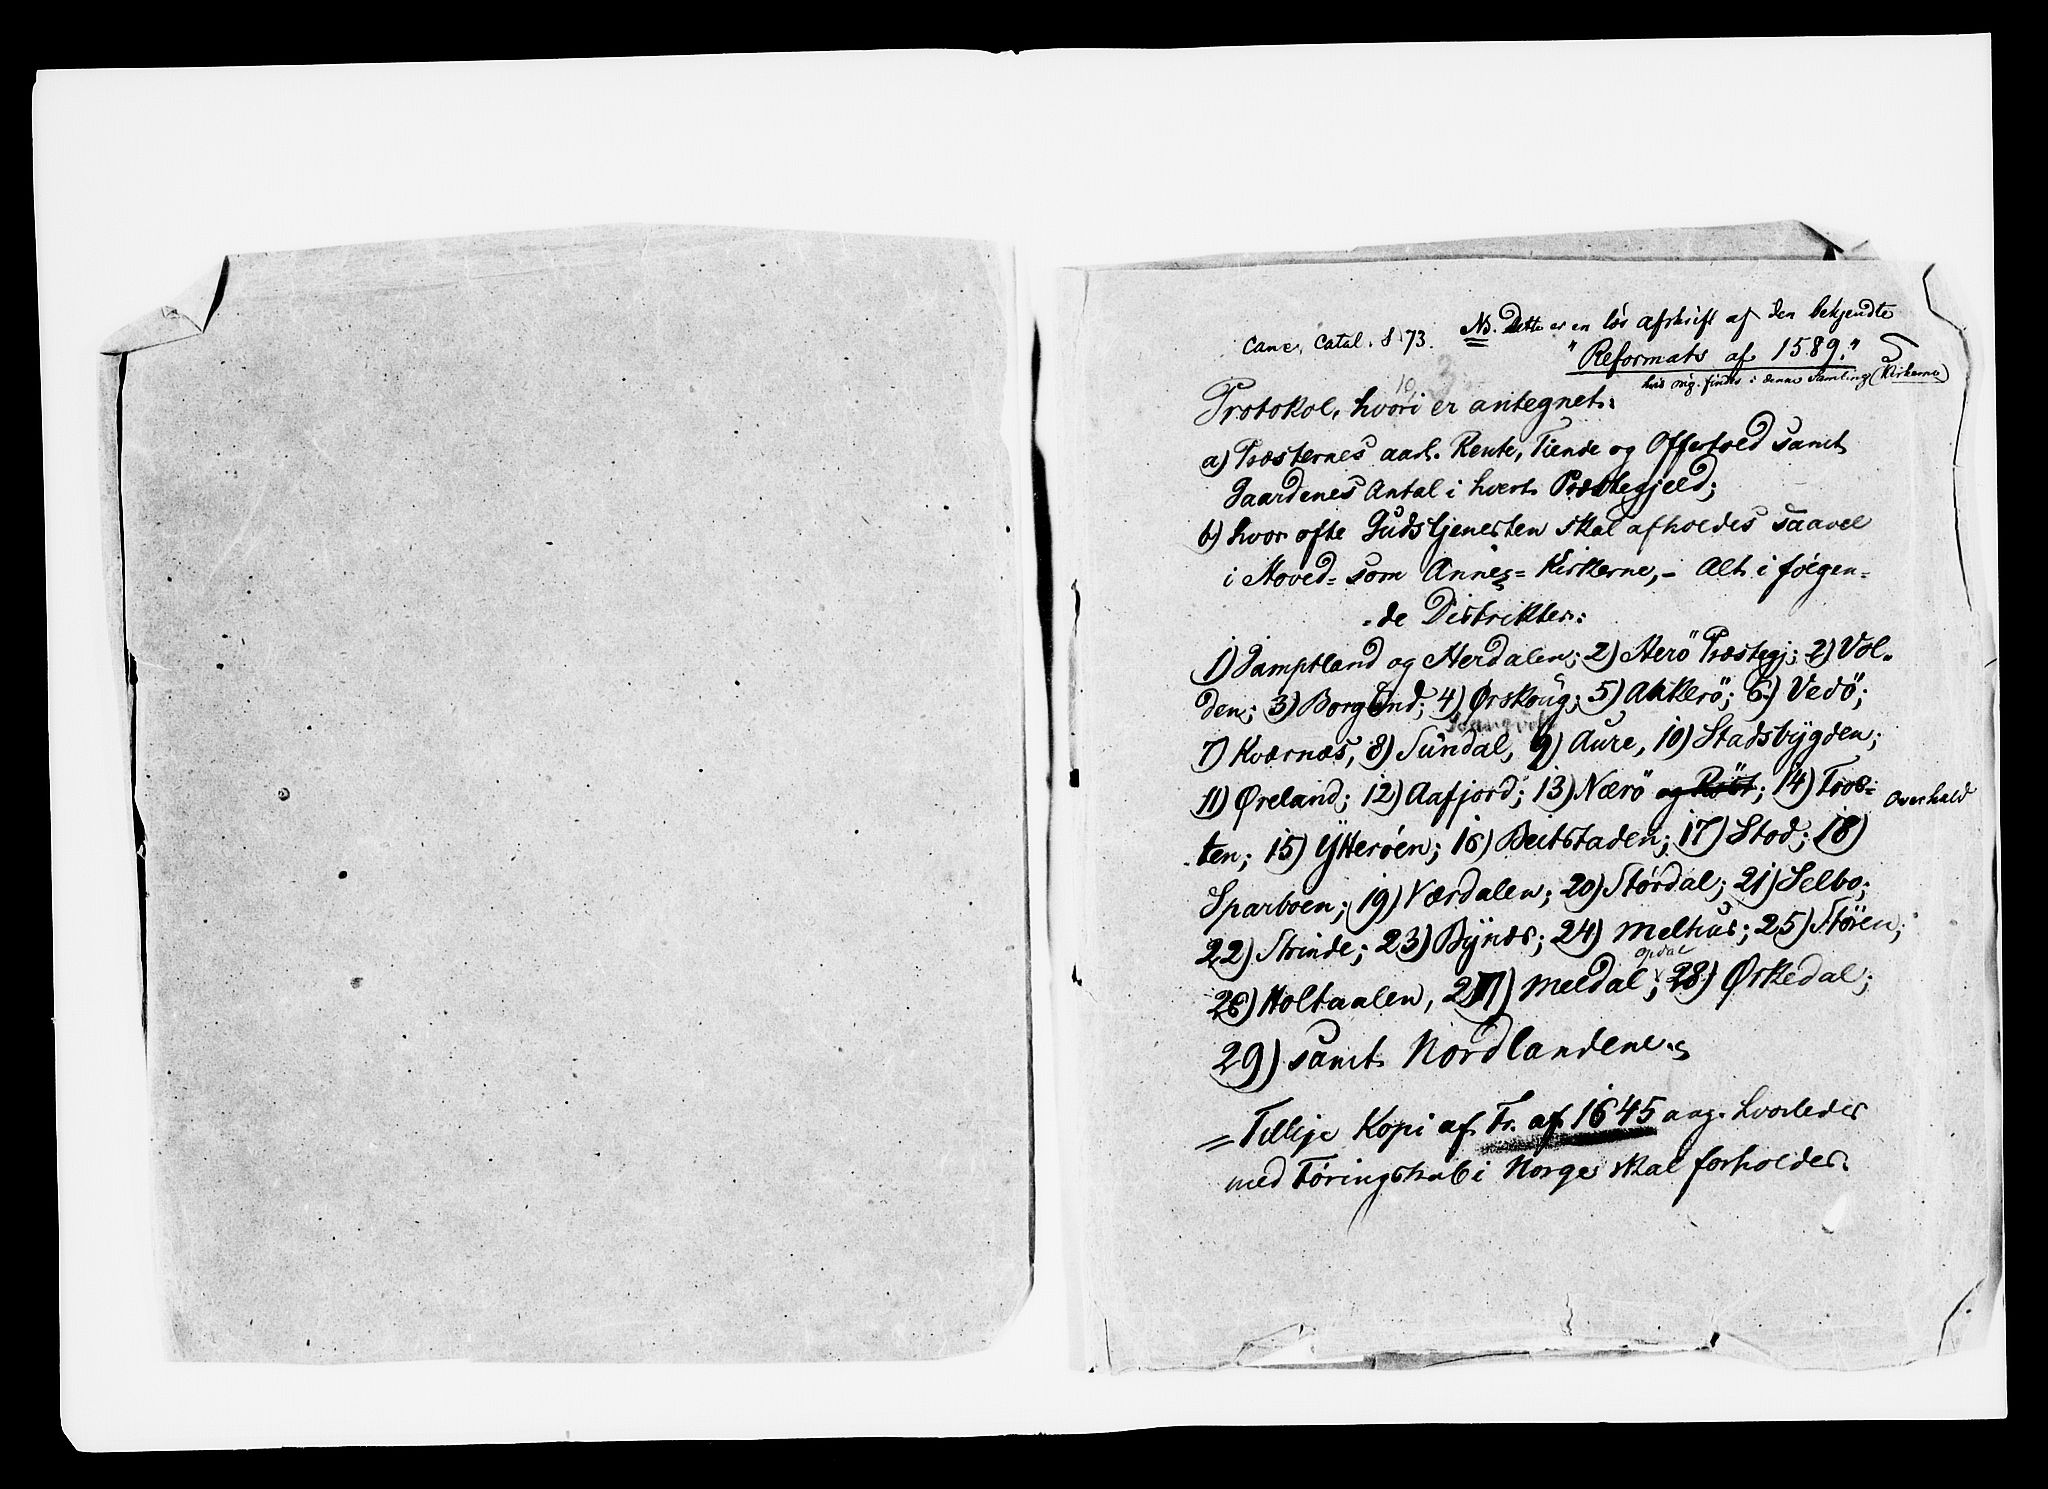 NB. Dette er en løs afskrift af den bekjendte
Canc. Catal. S 73.
"Reformats af 1589."
hvis orig. findes i denne Samling (Kirkerne)
10, 3
Protokol, hvori er antegnet:
a) Præsternes aarl. Rente, Tiende og Offertold samt
Gaardenes Antal i hvert Præstegjeld;
b) hvor ofte Gudstjenesten skal afholdes saavel
i Hoved= som Annex= Kirkerne, - Alt i følgen=
=de Distrikter:
1) Jamptland og Herdalen; 2) Herö Præstegj; 2) Vol-
den; 3) Borgund; 4) Ørskoug; 5) Akkerö; 6) Vedö;
7) Kværnæs, 8) Sundal, 9) Aure, 10) Stadsbygden;
11) Øreland; 12) Aafjord; 13) Nærö og Röst; 14) Tros=
Overhald
ten; 15) Ytterøen; 16) Beitstaden; 17) Stod; 18)
Sparboen; 19) Værdalen; 20) Størdal; 21) Selbo;
22) Strinde; 23) Bynæs; 24) Melhus; 25) Støren;
Opdal
26) Holtaalen, 27) Meldal; 28) Ørkedal;
29) samt Nordlandene.
= Tillige Kopi af Fr. af 1645 ang. hvorledes
med Føringskab i Norge skal forholdes.